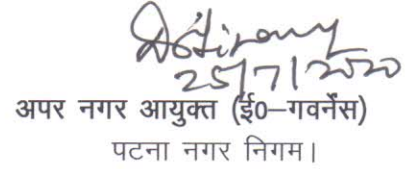 25/7/2020
अपर नगर आयुक्त (ई0–गवर्नेंस)
पटना नगर निगम।